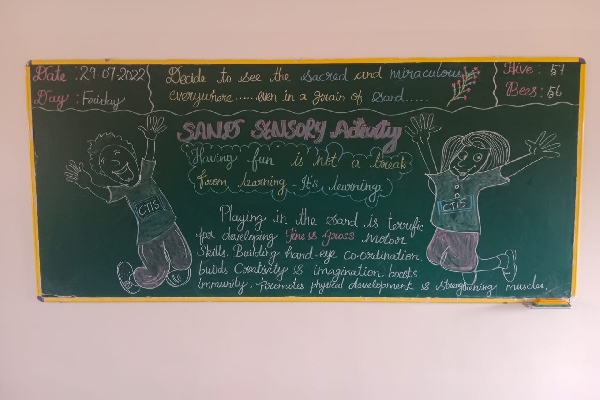 Date : 29.07.2022
Day : Friday
Decide to see the sacred and miraculous
everywhere......even in a grain of sand.....
Hive : 57
Bees : 56
SAND SENSORY Activity
Having fun is not a break
from learning. It's learning.
CTIS
CTIS
Playing in the sand is terrific
for developing fine & gross motor
Skills. Building hand-eye co-ordination.
builds Creativity & imagination. boosts
immunity. Promotes physical development & strengthening muscles.